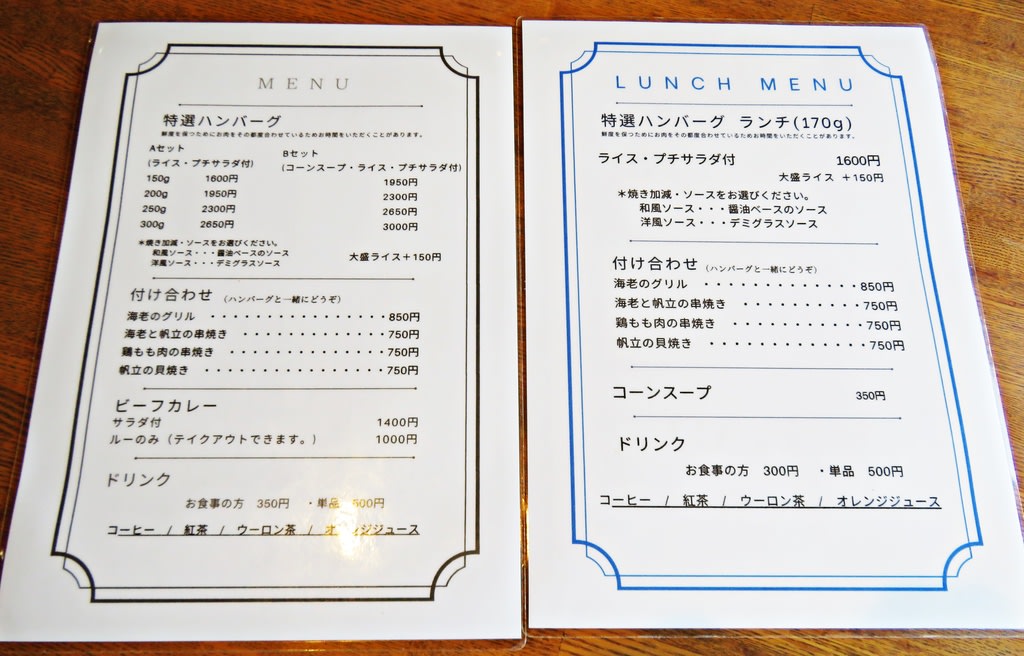 MENU
特選ハンバーグ
鮮度を保つためにお肉をその都度合わせているためお時間をいただくことがあります。
Aセット
(ライス・プチサラダ付)
150g 1600円
200g 1950円
250g 2300円
300g 2650円
Bセット
(コーンスープ・ライス・プチサラダ付)
1950円
2300円
2650円
3000円
＊焼き加減・ソースをお選びください。
和風ソース・・・醤油ベースのソース
洋風ソース・・・デミグラスソース
大盛ライス＋150円
付け合わせ (ハンバーグと一緒にどうぞ)
海老のグリル ・・・・・・・・・・・・・・・・850円
海老と帆立の串焼き ・・・・・・・・・・・・・750円
鶏もも肉の串焼き ・・・・・・・・・・・・・・750円
帆立の貝焼き ・・・・・・・・・・・・・・・・750円
ビーフカレー
サラダ付 1400円
ルーのみ（テイクアウトできます。） 1000円
ドリンク
お食事の方 350円 ・単品 500円
コーヒー / 紅茶 / ウーロン茶 / オレンジジュース
LUNCH MENU
特選ハンバーグ ランチ(170g)
鮮度を保つためにお肉をその都度合わせているためお時間をいただくことがあります。
ライス・プチサラダ付 1600円
大盛ライス ＋150円
＊焼き加減・ソースをお選びください。
和風ソース・・・醤油ベースのソース
洋風ソース・・・デミグラスソース
付け合わせ (ハンバーグと一緒にどうぞ)
海老のグリル ・・・・・・・・・・・・・850円
海老と帆立の串焼き ・・・・・・・・・・750円
鶏もも肉の串焼き ・・・・・・・・・・・750円
帆立の貝焼き ・・・・・・・・・・・・・750円
コーンスープ 350円
ドリンク
お食事の方 300円 ・単品 500円
コーヒー / 紅茶 / ウーロン茶 / オレンジジュース